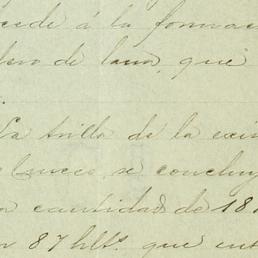 cede á la formac
de lana, que
La trilla de la exis
se concluy
cantidad de 18
87 hlts. que ent